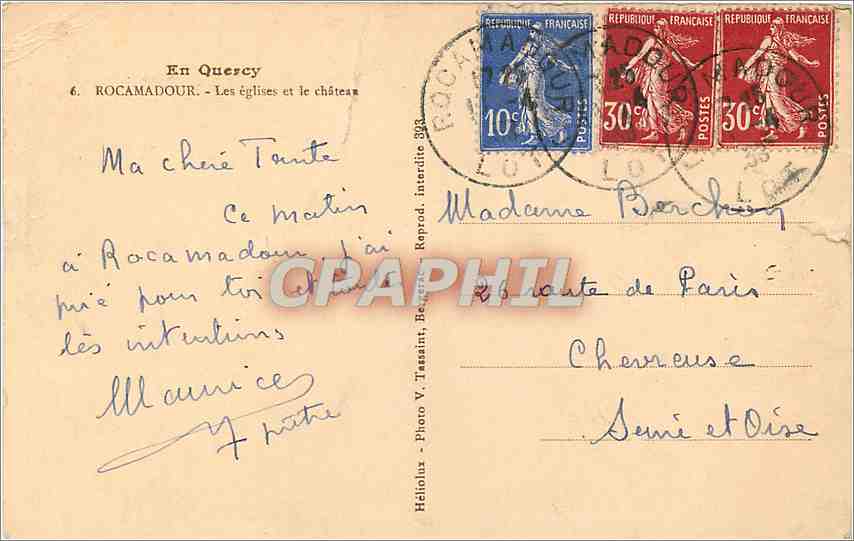 En Quercy
6. ROCAMADOUR. - Les églises et le château
Ma chère Tante
Ce matin
à Rocamadour j'ai
prié pour toi et toutes
tes intentions
Maurice
prêtre
Héliolux - Photo V. Tassaint, Bergerac Reprod. interdite 393
REPUBLIQUE FRANÇAISE
10c
POSTES
REPUBLIQUE FRANÇAISE
30c
POSTES
REPUBLIQUE FRANÇAISE
30c
POSTES
ROCAMADOUR
LOT
ROCAMADOUR
LOT
ROCAMADOUR
LOT
Madame
26 route de Paris
Chevreuse
Seine et Oise
CPAPHIL